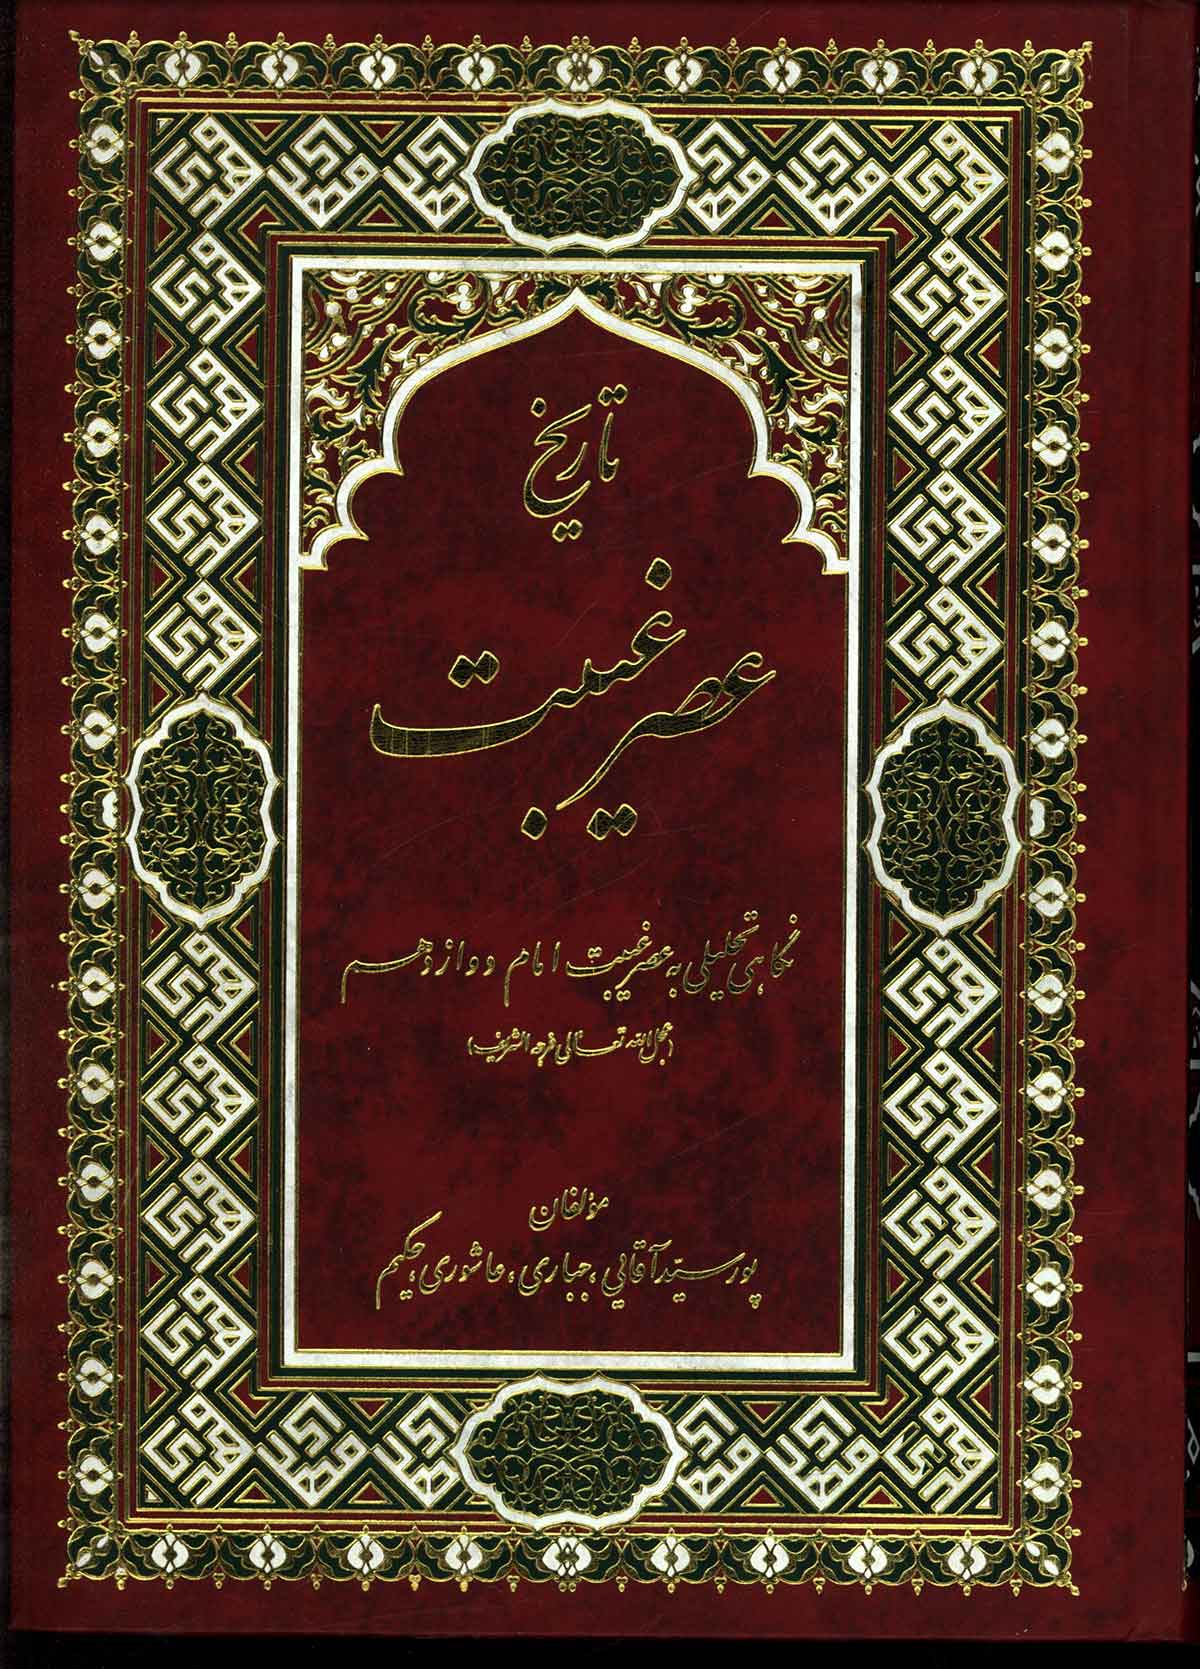 تاریخ
عصر غیبت
نگاهی تحلیلی به عصر غیبت امام دوازدهم
(عجل الله تعالی فرجه الشریف)
مؤلفان
پور سیّد آقایی، جباری، عاشوری، حکیم